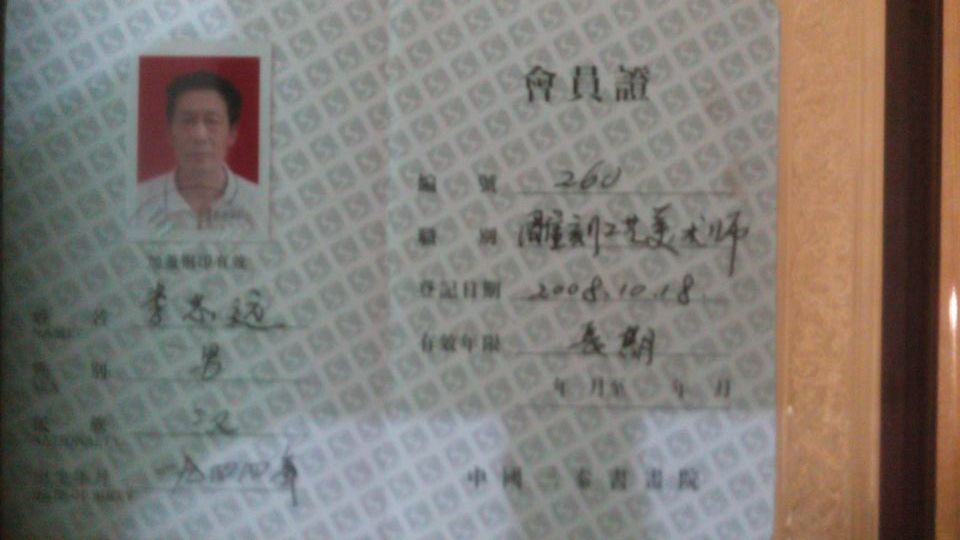 會員證
編 號 260
職 別 雕刻工艺美术师
登記日期 2008.10.18.
有效年限 長期
年 月至 年 月
中國三秦書畫院
姓 名 李
性 別 男
民 族 汉
出生年月